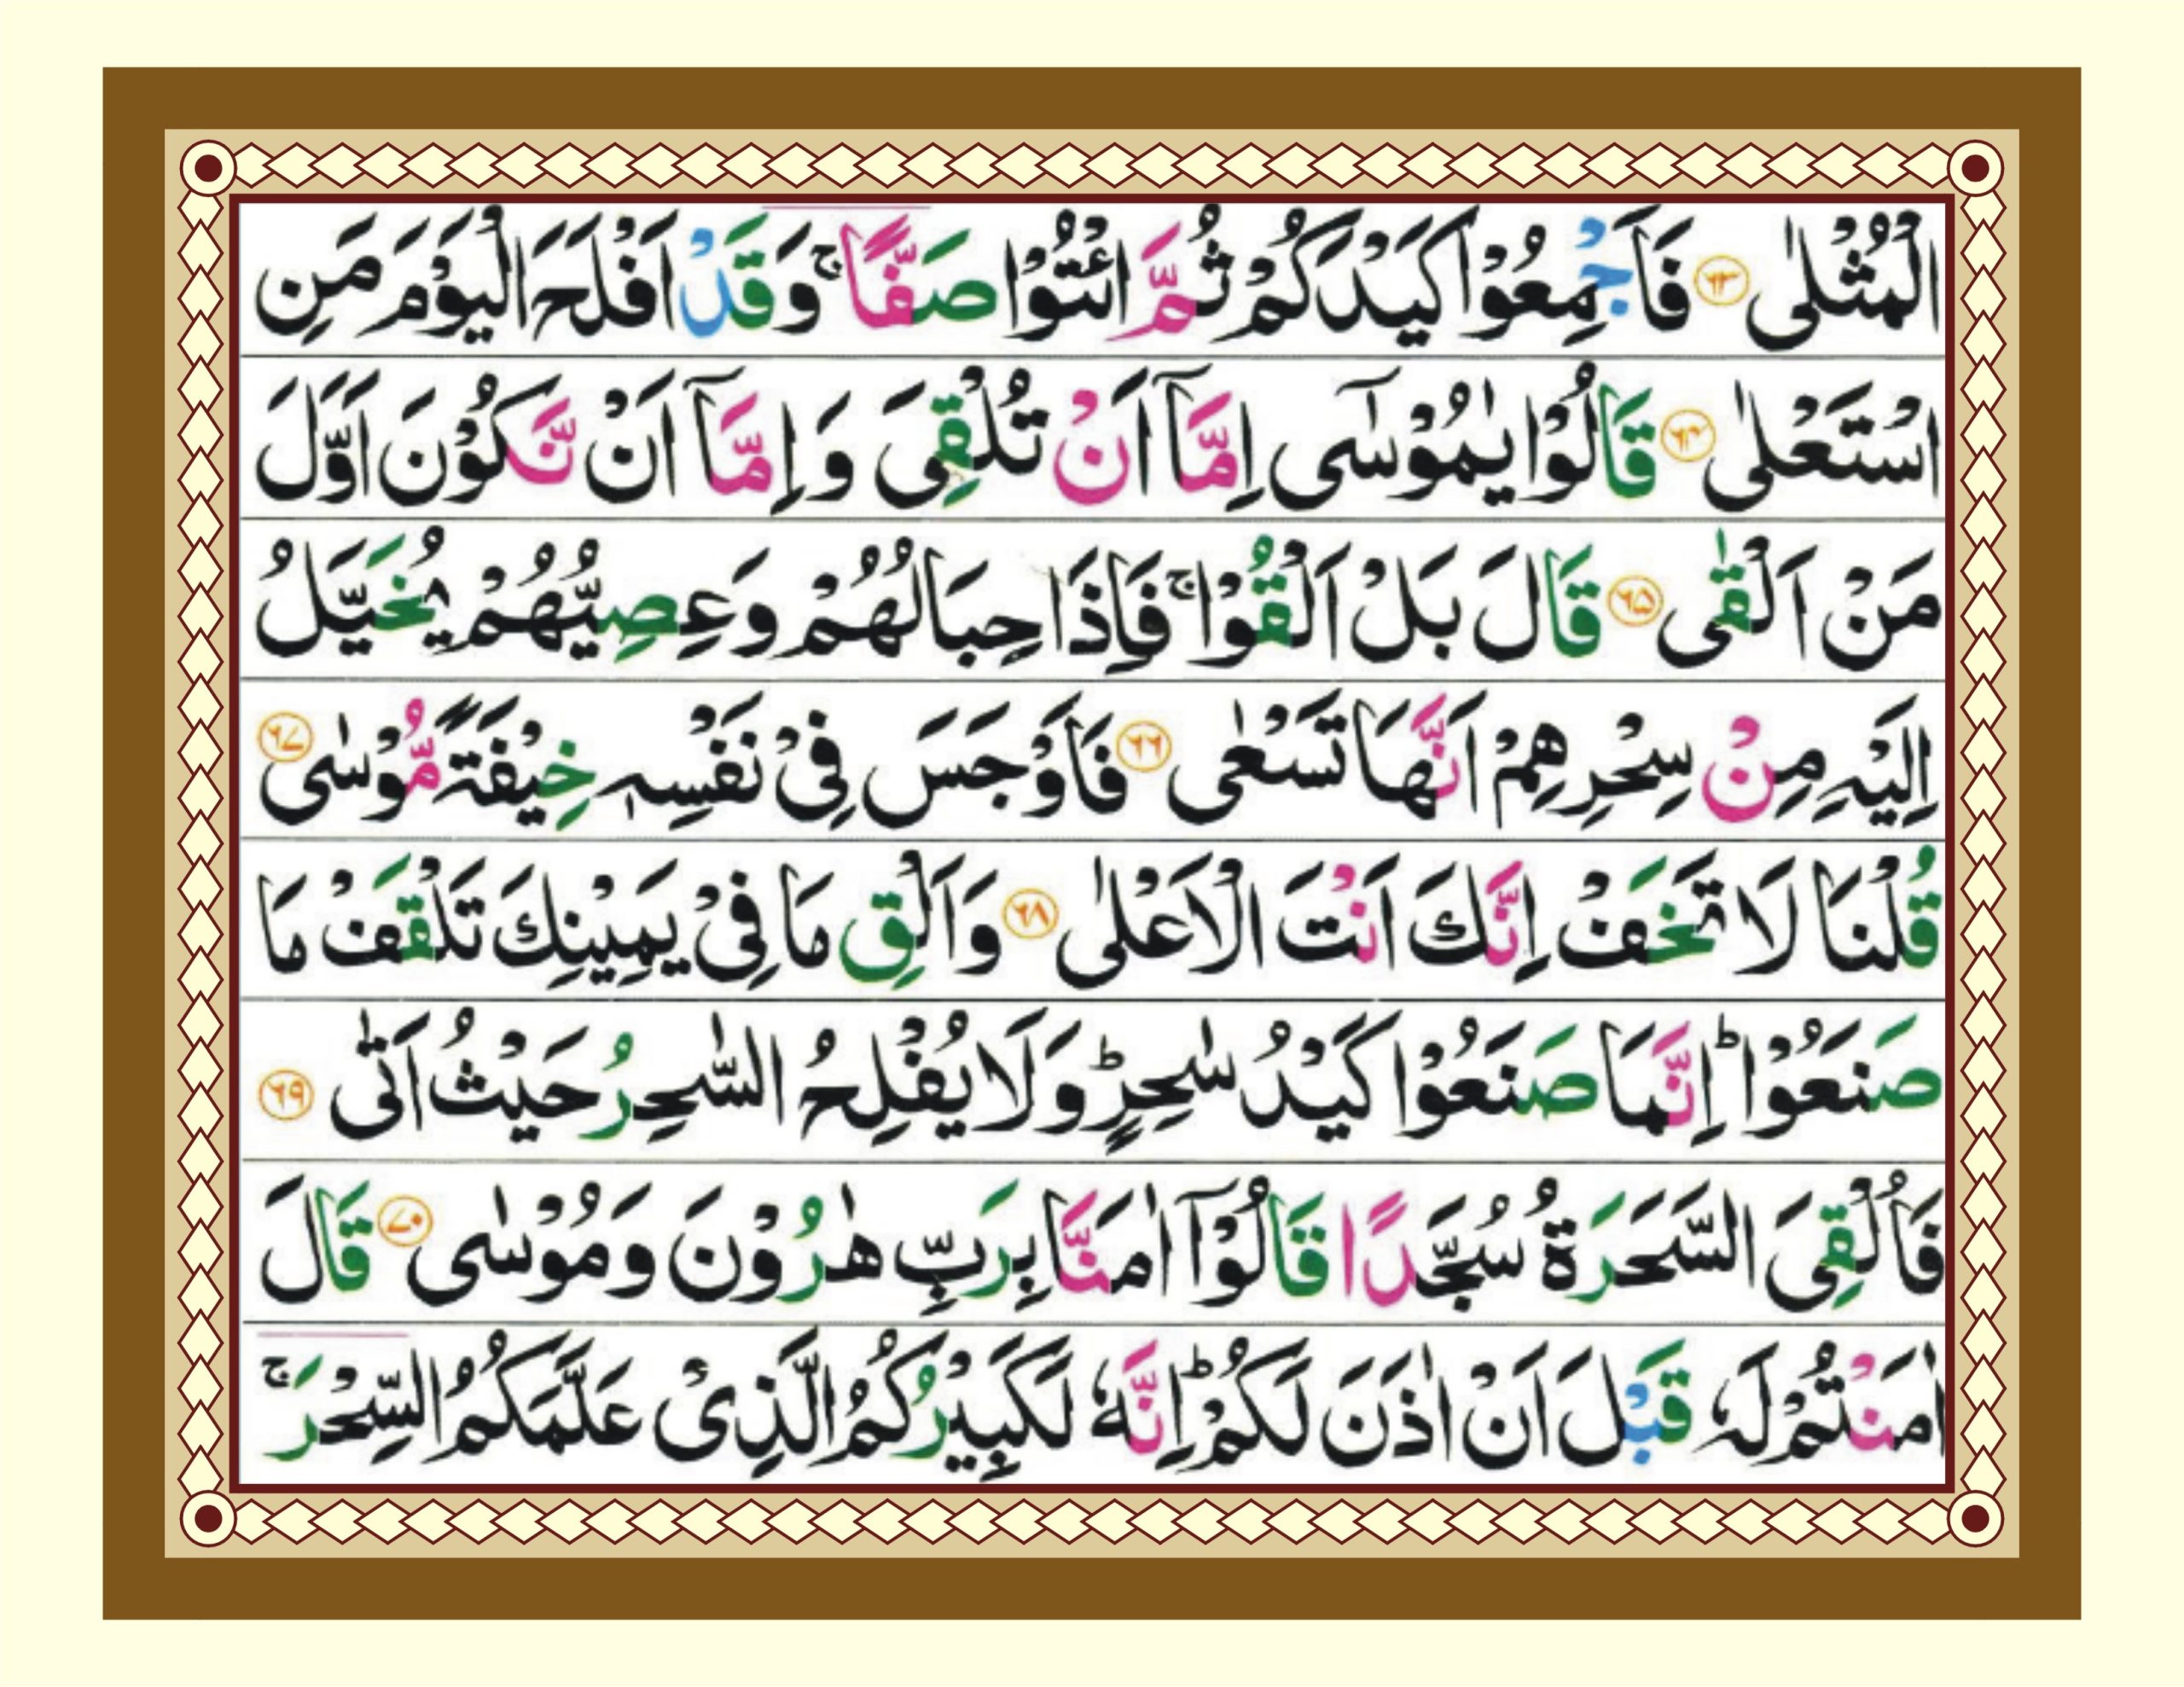 الْمُثْلٰى ۝۶۳ فَاَجْمِعُوْا كَيْدَكُمْ ثُمَّ ائْتُوْا صَفًّا ۚ وَقَدْ اَفْلَحَ الْيَوْمَ مَنِ
اسْتَعْلٰى ۝۶۴ قَالُوْا يٰمُوْسٰٓى اِمَّاۤ اَنْ تُلْقِىَ وَ اِمَّاۤ اَنْ نَّكُوْنَ اَوَّلَ
مَنْ اَلْقٰى ۝۶۵ قَالَ بَلْ اَلْقُوْا ۚ فَاِذَا حِبَالُهُمْ وَعِصِيُّهُمْ يُخَيَّلُ
اِلَيْهِ مِنْ سِحْرِهِمْ اَنَّهَا تَسْعٰى ۝۶۶ فَاَوْجَسَ فِىْ نَفْسِهٖ خِيْفَةً مُّوْسٰى ۝۶۷
قُلْنَا لَا تَخَفْ اِنَّكَ اَنْتَ الْاَعْلٰى ۝۶۸ وَاَلْقِ مَا فِىْ يَمِيْنِكَ تَلْقَفْ مَا
صَنَعُوْا ؕ اِنَّمَا صَنَعُوْا كَيْدُ سٰحِرٍ ؕ وَلَا يُفْلِحُ السّٰحِرُ حَيْثُ اَتٰى ۝۶۹
فَاُلْقِىَ السَّحَرَةُ سُجَّدًا قَالُوْۤا اٰمَنَّا بِرَبِّ هٰرُوْنَ وَمُوْسٰى ۝۷۰ قَالَ
اٰمَنْتُمْ لَهٗ قَبْلَ اَنْ اٰذَنَ لَكُمْ ؕ اِنَّهٗ لَكَبِيْرُكُمُ الَّذِىْ عَلَّمَكُمُ السِّحْرَ ۚ